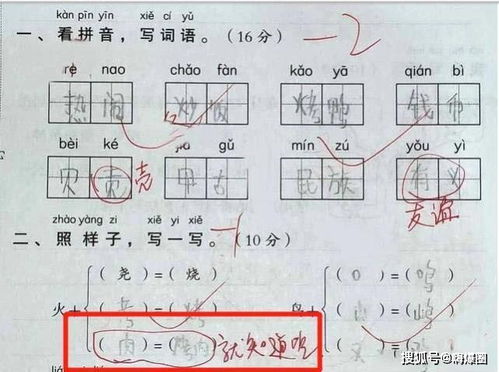 kàn pīn yīn xiě cí yǔ
一、看拼音，写词语。（16 分） -2
rè nao chǎo fàn kǎo yā qián bì
热闹 炒饭 烤鸭 钱币
bèi ké jiǎ gǔ mín zú yǒu yì
贝贡 壳 甲古 民族 有义
友谊
zhào yàng zi xiě yi xiě
二、照样子，写一写。 -1（10 分）
火+ （尧）=（烧） 鸟+ （口）=（鸣）
（考）=（烤）
（肉）=（烤肉） 就知道吃
搜狐号@精爆圈